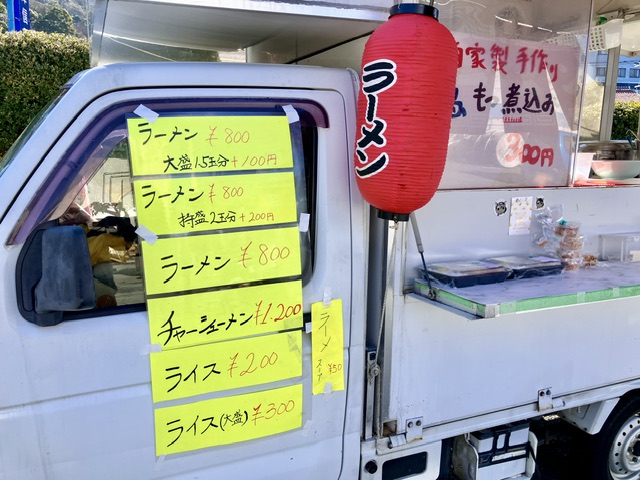 ラーメン ¥800
大盛1.5玉分+100円
ラーメン ¥800
特盛2玉分+200円
ラーメン ¥800
チャーシューメン ¥1.200
ライス ¥200
ライス(大盛) ¥300
ラーメン
自家製 手作り
もつ煮込み
300円